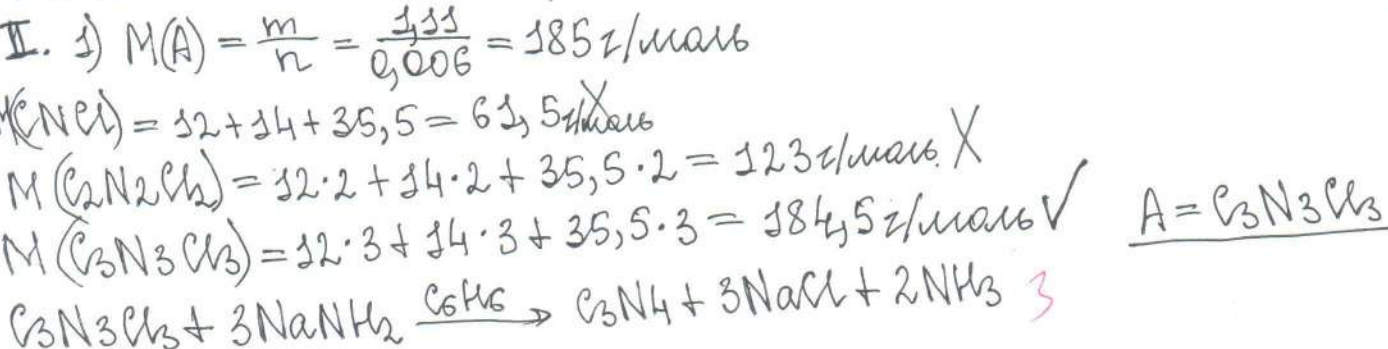 II. 1) M(A) = m/n = 1,11/0,006 = 185 г/моль
M(CNCl) = 12+14+35,5 = 61,5 г/моль X
M(C2N2Cl2) = 12·2 + 14·2 + 35,5·2 = 123 г/моль X
M(C3N3Cl3) = 12·3 + 14·3 + 35,5·3 = 184,5 г/моль ✓ A = C3N3Cl3
C3N3Cl3 + 3NaNH2 —C6H6→ C3N4 + 3NaCl + 2NH3 3